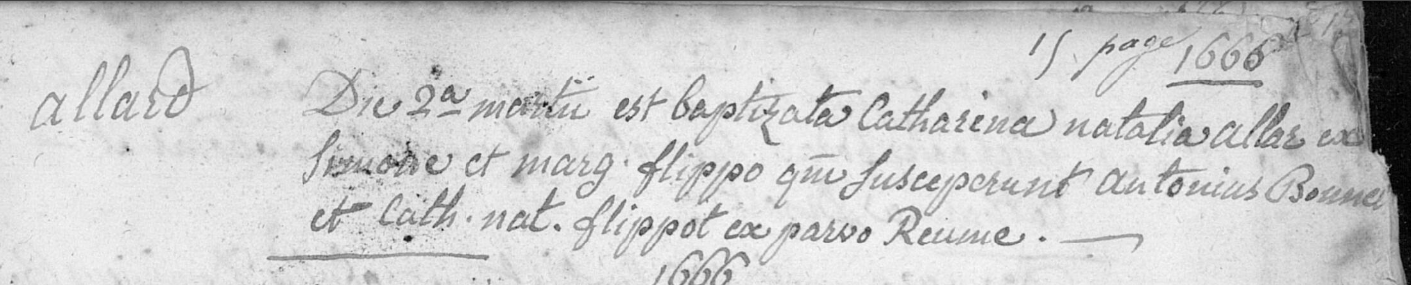 15 page 1666
allard
Die 2a martii est baptizata Catharina natalia allar ex
Simone et marg. flippo qm̄ susceperunt Antonius Bonnet
et Cath. nat. flippot ex parvo Reume. —
1666